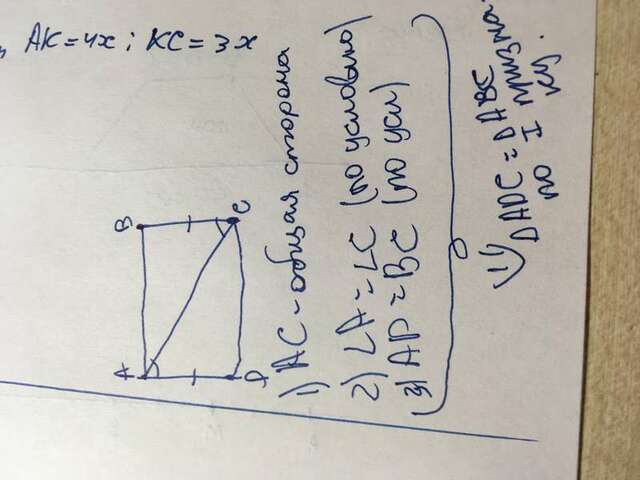 AK = 4x; KC = 3x
A
B
D
C
1) AC - общая сторона
2) ∠A = ∠C (по условию)
3) AD = BC (по усл)
ΔADC = ΔABC
по I призна-
ку.